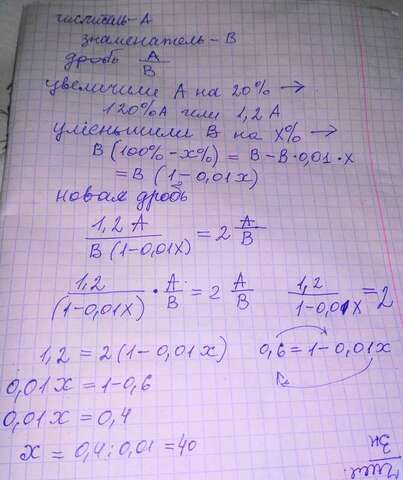 числитель - А
знаменатель - В
дробь A/B
увеличили А на 20% →
120%А или 1,2 А
уменьшили В на х% →
В (100% - х%) = В - В·0,01·х
= В (1 - 0,01х)
новая дробь
1,2 A / B (1-0,01х) = 2 A/B
1,2 / (1-0,01х) · A/B = 2 A/B   1,2 / 1-0,01х = 2
1,2 = 2 (1 - 0,01х)   0,6 = 1 - 0,01х
0,01х = 1 - 0,6
0,01х = 0,4
х = 0,4 : 0,01 = 40
Зн